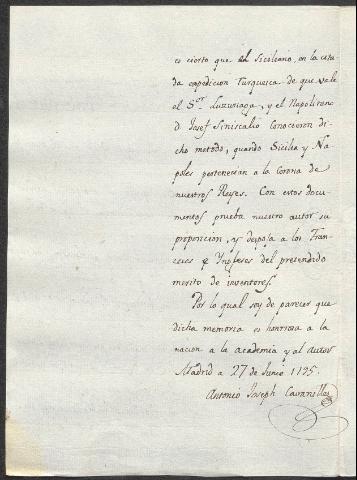 es cierto que el Siciliano, en la cita
da expedicion Turquesca de que vale
el S.or Luzuriaga, y el Napolitano
D Josef Siniscalio conocieron di
cho metodo, quando Sicilia y Na
poles pertenecian a la Corona de
nuestros Reyes. Con estos docu
mentos prueba nuestro autor su
proposicion, y despoja a los Fran
ceses e Yngleses del pretendido
merito de inventores.
Por lo qual soy de parecer que
dicha memoria es honrrosa a la
nacion a la academia y al autor
Madrid a 27 de Junio 1795.
Antonio Joseph Cavanilles